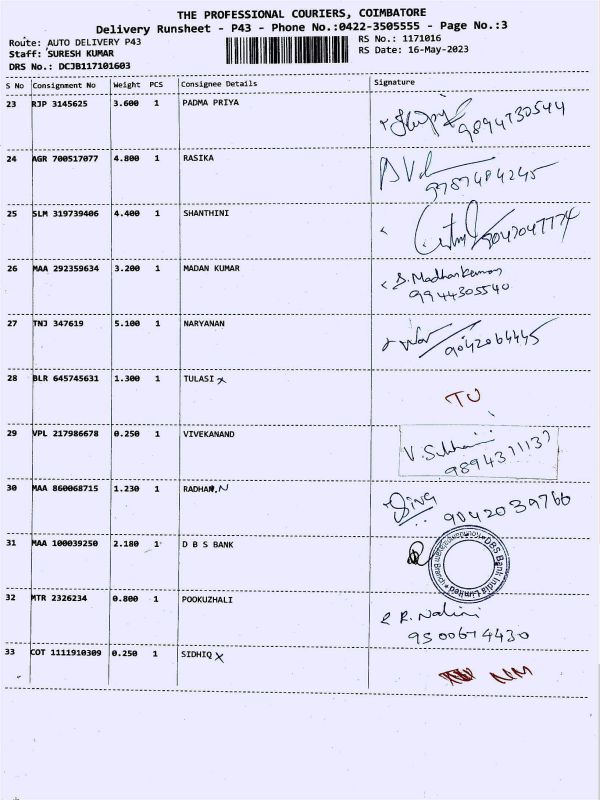 THE PROFESSIONAL COURIERS, COIMBATORE
Delivery Runsheet - P43 - Phone No.:0422-3505555 - Page No.:3
Route: AUTO DELIVERY P43 RS No.: 1171016
Staff: SURESH KUMAR RS Date: 16-May-2023
DRS No.: DCJB117101603
S No Consignment No Weight PCS Consignee Details Signature
23 RJP 3145625 3.600 1 PADMA PRIYA
9894730544
24 AGR 700517077 4.800 1 RASIKA
9787484245
25 SLM 319739406 4.400 1 SHANTHINI
9042047774
26 MAA 292359634 3.200 1 MADAN KUMAR S. Madhankumar
9944305540
27 TNJ 347619 5.100 1 NARYANAN
9042064445
28 BLR 645745631 1.300 1 TULASI x
TU
29 VPL 217986678 0.250 1 VIVEKANAND
V. Subhani
9894371137
30 MAA 860068715 1.230 1 RADHAR.N
Siva 9042039766
31 MAA 100039250 2.180 1 D B S BANK
DBS Bank India Limited
32 MTR 2326234 0.800 1 POOKUZHALI
R. Nalini
9500674430
33 COT 1111910309 0.250 1 SIDHIQ x
NM